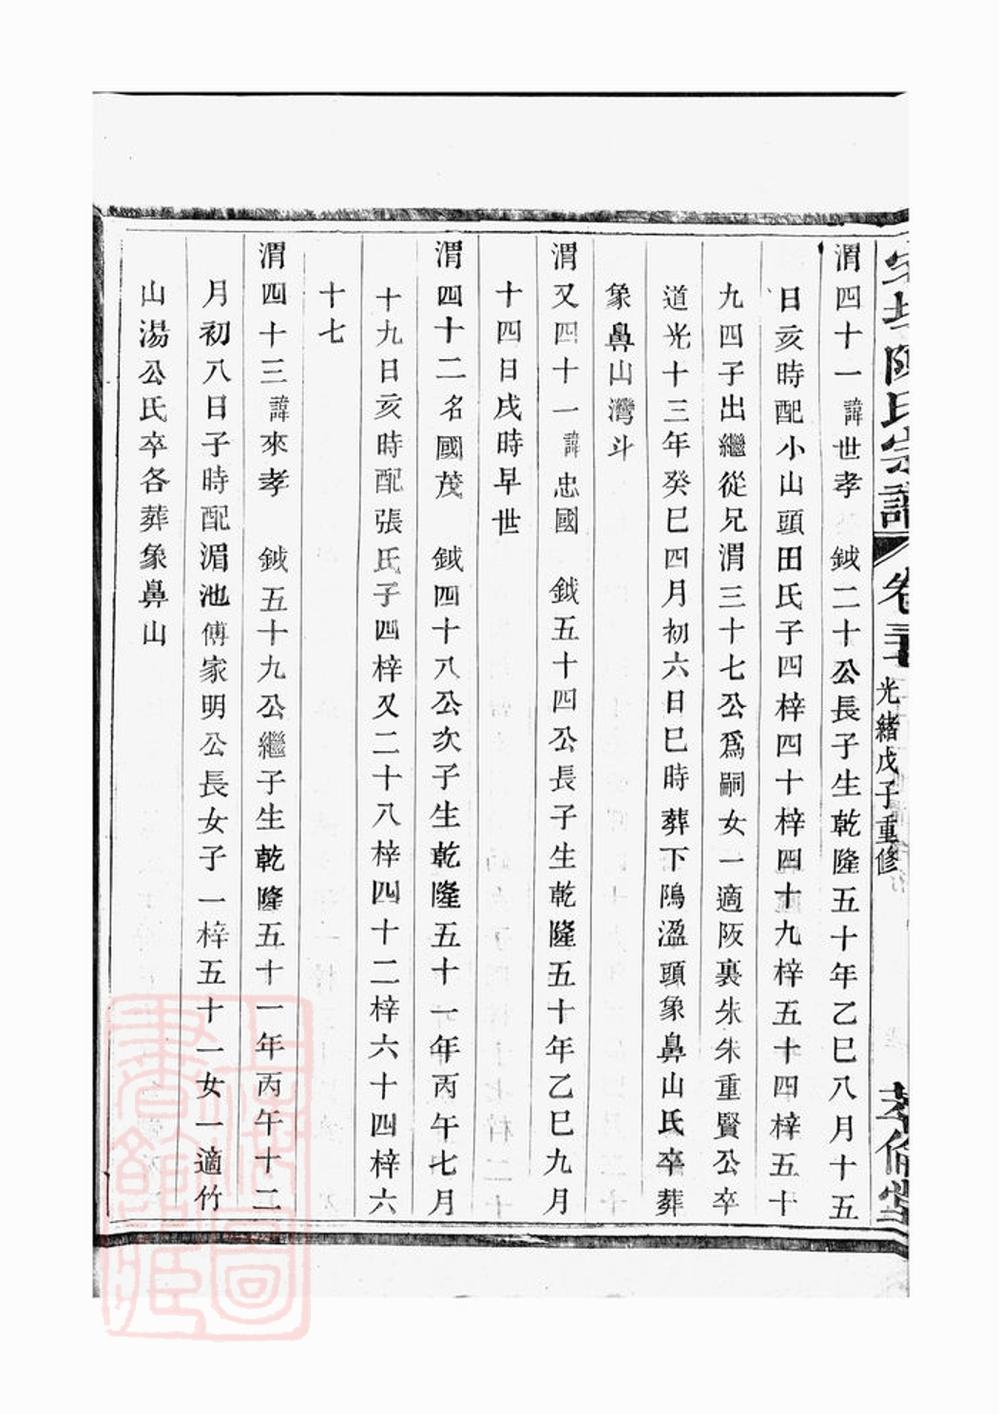 陳氏宗譜 卷 光緒戊子重修 倫堂
渭四十一諱世孝 鉞二十公長子生乾隆五十年乙巳八月十五
日亥時配小山頭田氏子四梓四十梓四十九梓五十四梓五十
九四子出繼從兄渭三十七公爲嗣女一適阪裏朱朱重賢公卒
道光十三年癸巳四月初六日巳時葬下隖溋頭象鼻山氏卒葬
象鼻山灣斗
渭又四十一諱忠國 鉞五十四公長子生乾隆五十年乙巳九月
十四日戌時早世
渭四十二名國茂 鉞四十八公次子生乾隆五十一年丙午七月
十九日亥時配張氏子四梓又二十八梓四十二梓六十四梓六
十七
渭四十三諱來孝 鉞五十九公繼子生乾隆五十一年丙午十二
月初八日子時配湄池傅家明公長女子一梓五十一女一適竹
山湯公氏卒各葬象鼻山
上海圖書館藏